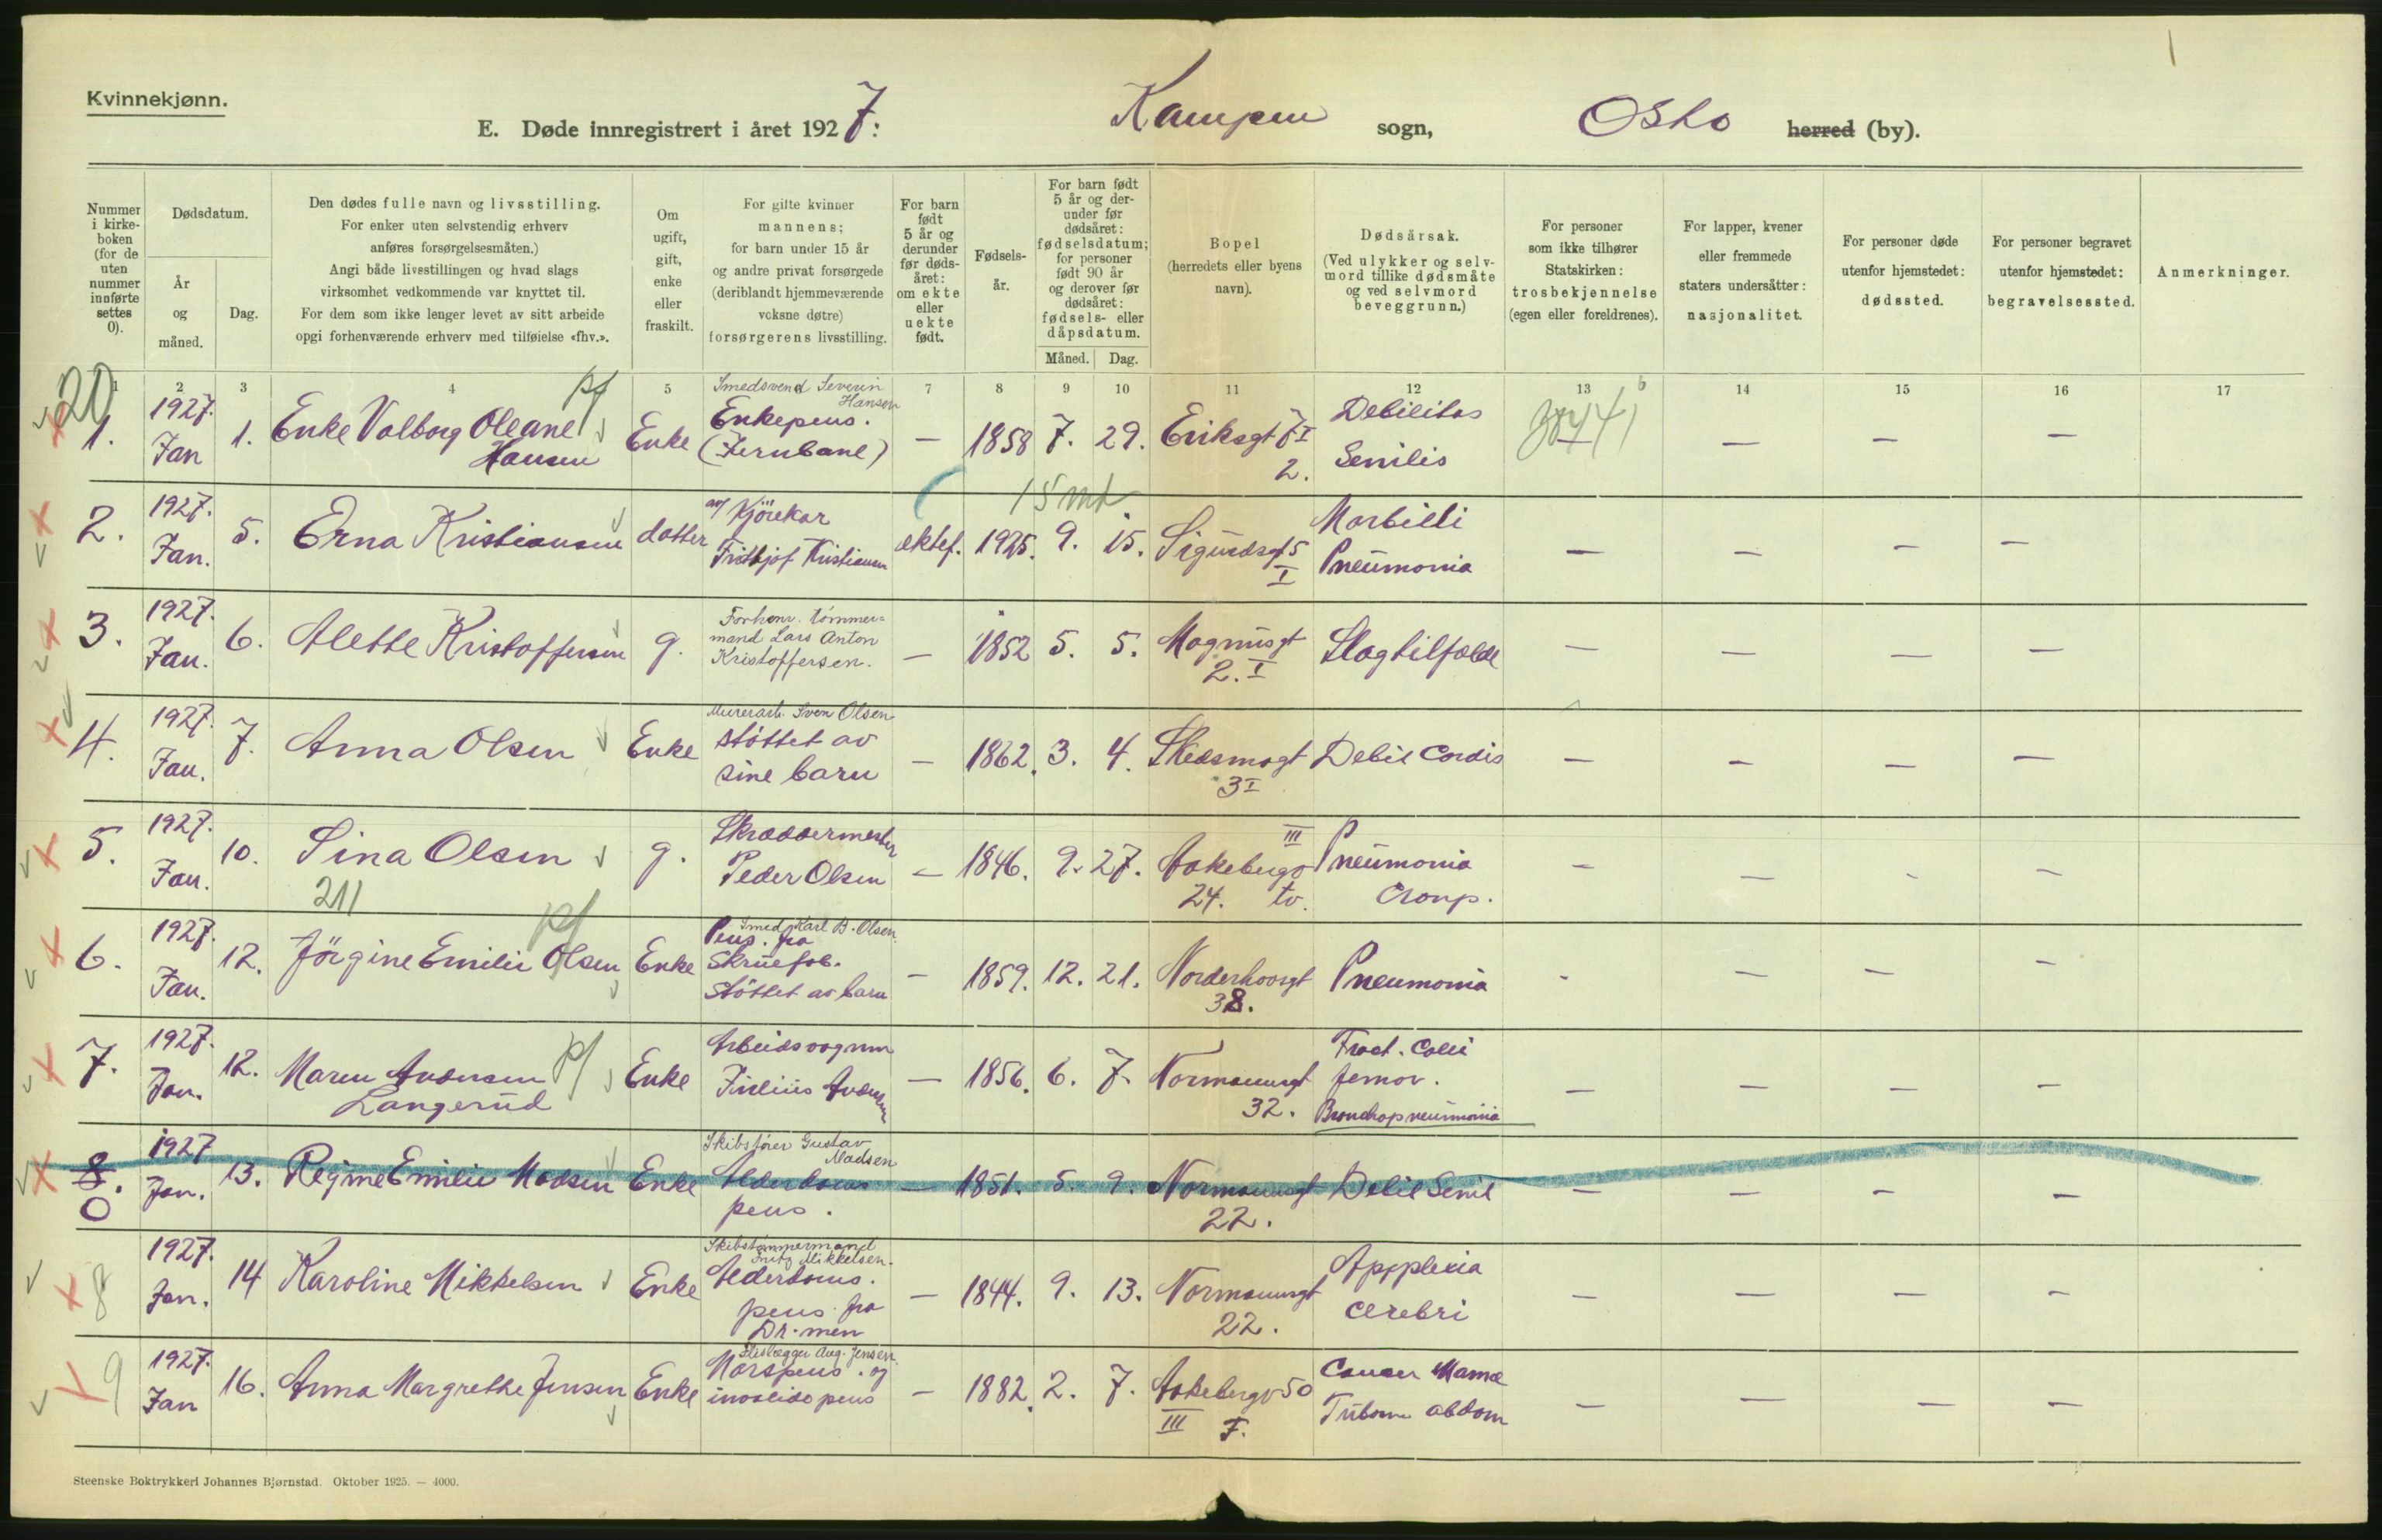 Kvinnekjønn.
E. Døde innregistrert i året 1927: Kampen sogn, Oslo herred (by).
Nummer i kirkeboken (for de uten nummer innførte settes 0).
Dødsdatum.
År og måned.
Dag.
Den dødes fulle navn og livsstilling.
For enker uten selvstendig erhverv
anføres forsørgelsesmåten.)
Angi både livsstillingen og hvad slags
virksomhet vedkommende var knyttet til.
For dem som ikke lenger levet av sitt arbeide
opgi forhenværende erhverv med tilføielse «fhv.».
Om ugift, gift, enke eller fraskilt.
For gifte kvinner
mannens;
for barn under 15 år
og andre privat forsørgede
(deriblandt hjemmeværende
voksne døtre)
forsørgerens livsstilling.
For barn født 5 år og derunder før dødsåret: om ekte eller uekte født.
Fødselsår.
For barn født 5 år og derunder før dødsåret: fødselsdatum; for personer født 90 år og derover før dødsåret: fødsels- eller dåpsdatum.
Måned. Dag.
Bopel
(herredets eller byens
navn).
Dødsårsak.
(Ved ulykker og selvmord tillike dødsmåte
og ved selvmord
beveggrunn.)
For personer
som ikke tilhører
Statskirken:
trosbekjennelse
(egen eller foreldrenes).
For lapper, kvener
eller fremmede
staters undersåtter:
nasjonalitet.
For personer døde
utenfor hjemstedet:
dødssted.
For personer begravet
utenfor hjemstedet:
begravelsessted.
Anmerkninger.
1 2 3 4 5 7 8 9 10 11 12 13 14 15 16 17
20
1. 1927. Jan 1. Enke Valborg Oleane Hansen Enke Smedsvend Severin Hansen Enkepens. (Jernbane) — 1858 7. 29. Eriksgt 7 I 2. Debilitas Senilis — — — —
15 mt
2. 1927. Jan. 5. Erna Kristiansen datter av Kjörekar Fridtjof Kristiansen ektef. 1925. 9. 15. Sigurdsgt 5 I Morbilli Pneumonia — — — —
3. 1927. Jan. 6. Alette Kristoffersen g. Forhenv. tömmermand Lars Anton Kristoffersen. — 1852 5. 5. Magnusgt 2. I Slagtilfælde — — — —
4. 1927. Jan. 7. Anna Olsen Enke Murerarb. Sven Olsen støttet av sine barn — 1862. 3. 4. Skedsmogt 3 I Debil Cordis — — — —
5. 1927. Jan. 10. Sina Olsen g. Skræddermester Peder Olsen — 1846. 9. 27. Aakebergv 24. III tv. Pneumonia Croup. — — — —
211
6. 1927. Jan. 12. Jörgine Emilie Olsen Enke Smed Karl B. Olsen. Pens. fra Skruefab. støttet av barn — 1859. 12. 21. Norderhovsgt 38. Pneumonia - — — —
7. 1927. Jan. 12. Maren Andersen Langerud Enke Arbeidsvognm Julius Andersen — 1856. 6. 7. Normannsgt 32. Fract. Colli femor. Bronchopneumonia — — — —
8. 0 1927 Jan. 13. Regine Emilie Madsen Enke Skibsfører Gustav Madsen Alderdoms pens. — 1851. 5. 9. Normannsgt 22. Debil Senil — — — —
8 1927. Jan. 14 Karoline Mikkelsen Enke Skibstømmermand Fritz Mikkelsen. Alderdoms. pens. fra Dr.men — 1844. 9. 13. Normannsgt 22. Apoplexia cerebri — — — —
9 1927. Jan 16. Anna Margrethe Jensen Enke Aug. Jensen. Morspens. og invalidepens — 1882. 2. 7. Aakebergv 50 III F. Cancer Mamæ abdom — — — —
Steenske Boktrykkeri Johannes Bjørnstad. Oktober 1925. — 4000.